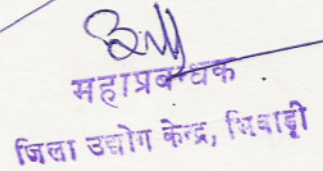 महाप्रबन्धक
जिला उद्योग केन्द्र, भिवाड़ी